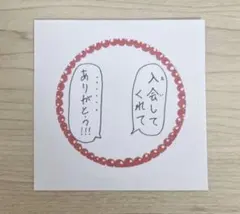 入会して
くれて
ありがとう!!!